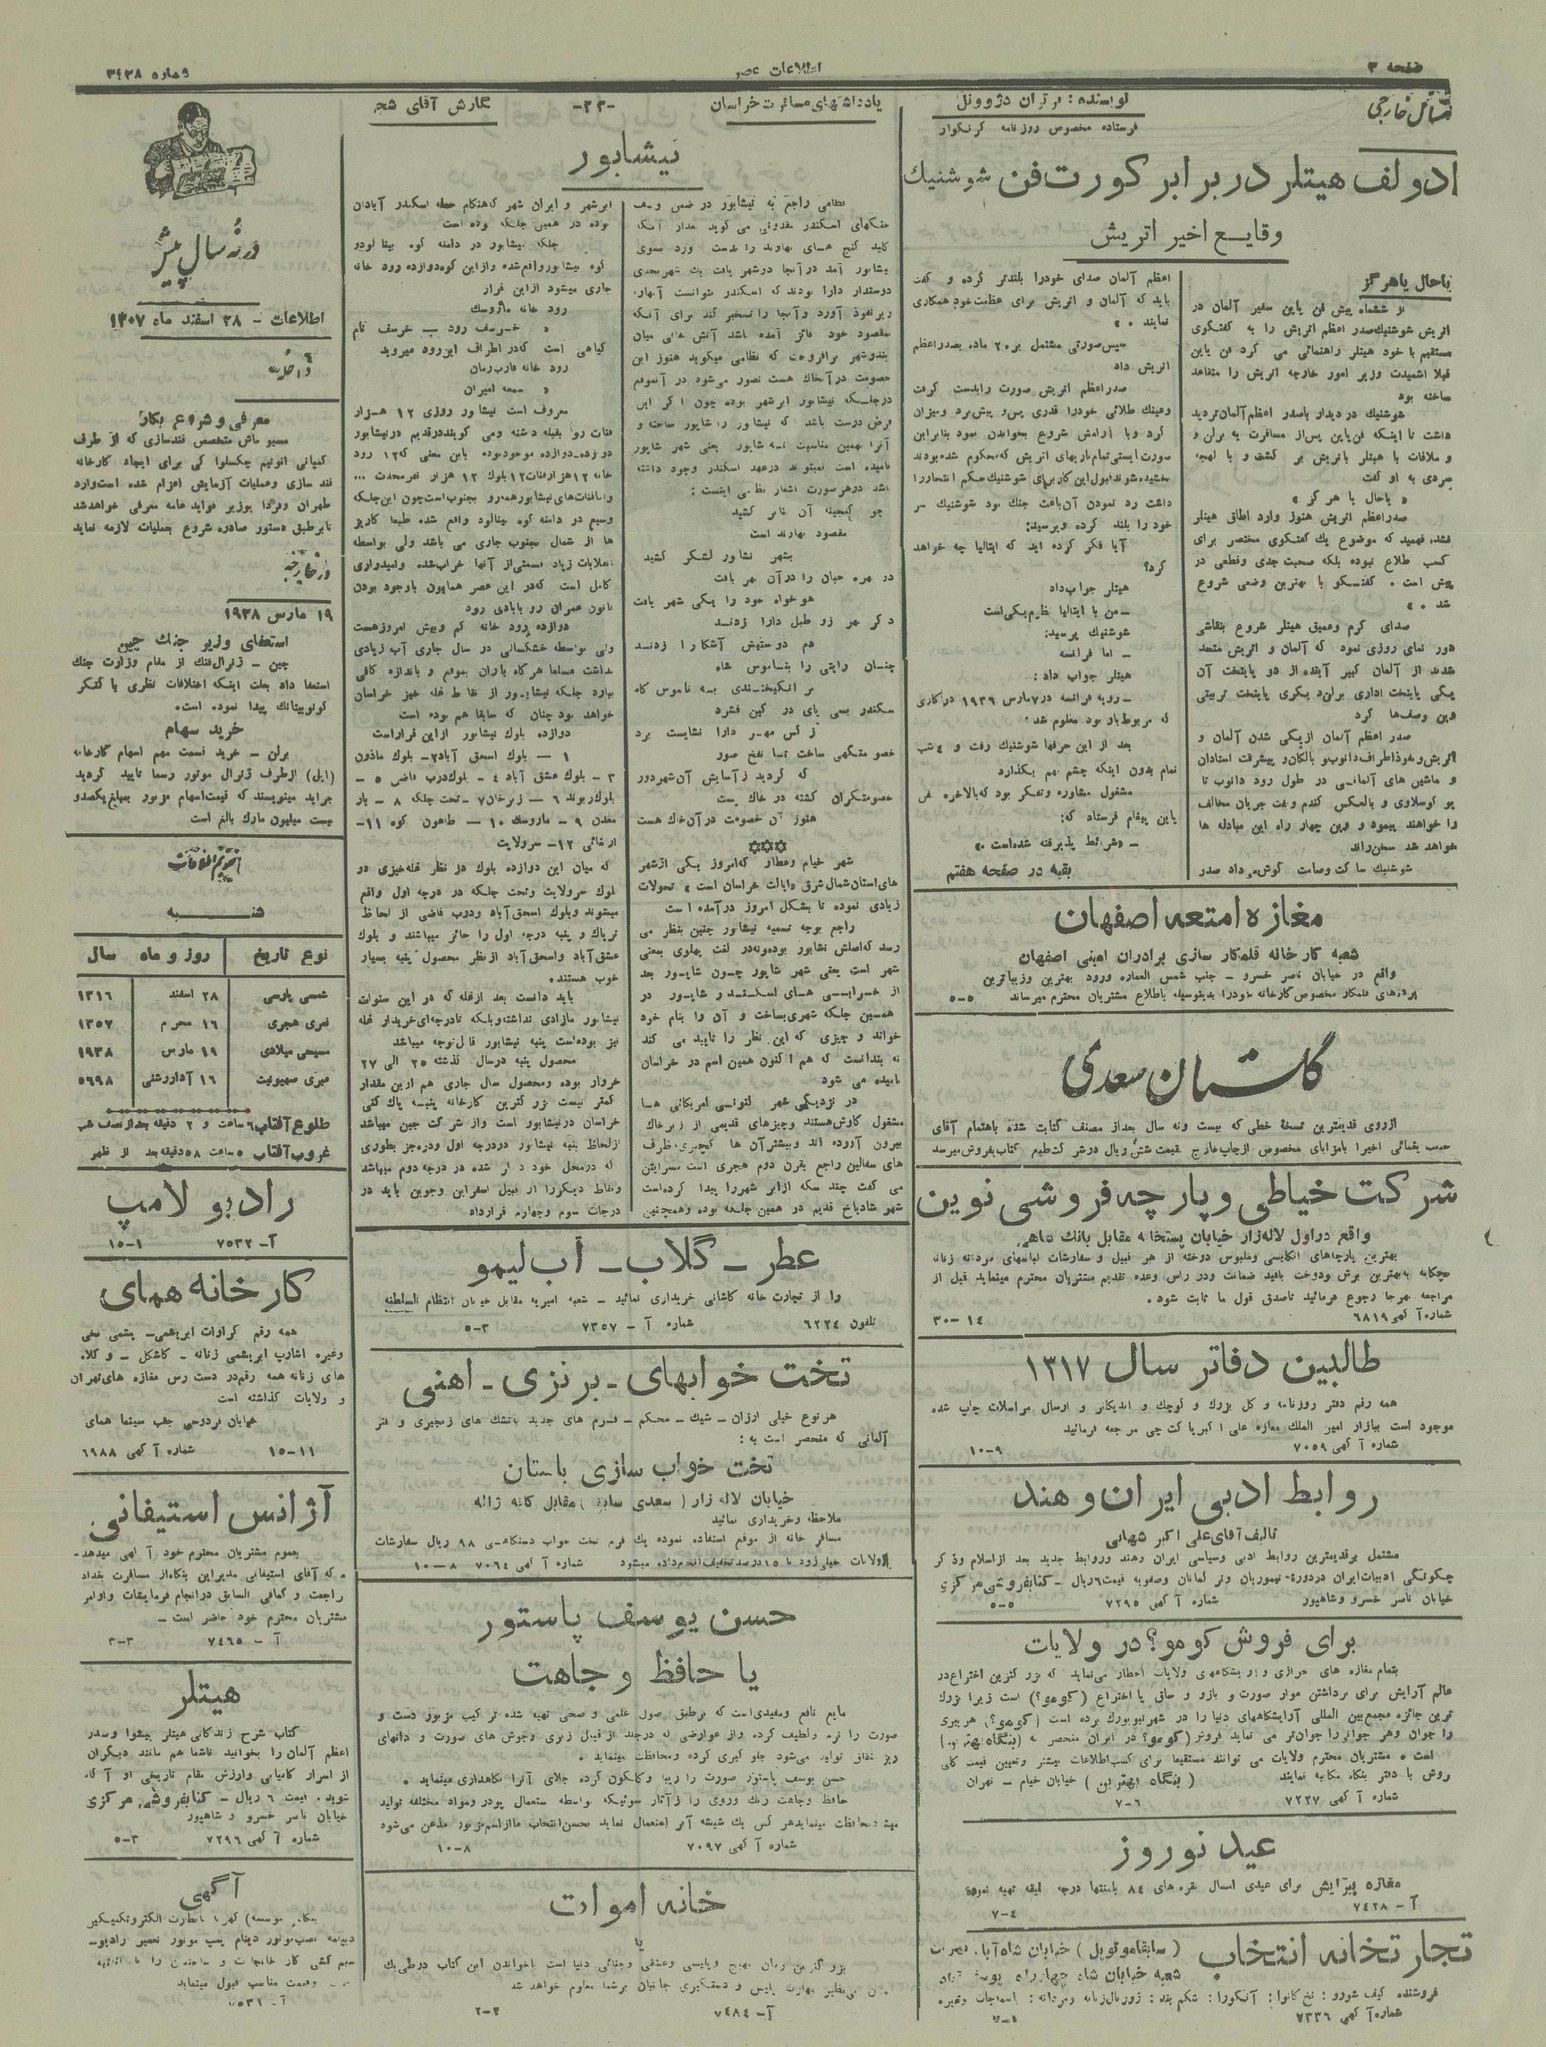 صفحه ۳
اطلاعات عصر
شماره ۳۴۳۸
مسائل خارجی
نویسنده: برتران دژوونل
فرستاده مخصوص روزنامه گرنگوار
ادولف هیتلر در برابر کورت فن شوشنیك
وقایع اخیر اتریش
یا حال یا هرگز
از ششماه پیش فن پاپن سفیر آلمان در
اتریش شوشنیك صدر اعظم اتریش را به گفتگوی
مستقیم با خود هیتلر راهنمائی می کرد فن پاپن
قبلا اشمیدت وزیر امور خارجه اتریش را متقاعد
ساخته بود
شوشنیك در دیدار با صدر اعظم آلمان تردید
داشت تا اینکه فن پاپن پس از مسافرت به برلن و
و ملاقات با هیتلر باتریش بر گشت و با لهجه
سردی به او گفت
« یا حال یا هر گز »
صدر اعظم اتریش هنوز وارد اطاق هیتلر
نشده فهمید که موضوع یك گفتگوی مختصر برای
کسب اطلاع نبوده بلکه صحبت جدی و قطعی در
پیش است . گفتگو با بهترین وضعی شروع
شد . »
صدای گرم و عمیق هیتلر شروع بنقاشی
دور نمای روزی نمود که آلمان و اتریش متحد
شدند از آلمان کبیر آینده از دو پایتخت آن
یکی پایتخت اداری برلن دیگری پایتخت تربیتی
وین وصف ها کرد
صدر اعظم آلمان از یکی شدن آلمان و
اتریش و نفوذ اطراف دانوب و بالکان و پیشرفت استادان
و ماشین های آلمانی در طول رود دانوب تا
یو گوسلاوی و بالعکس گندم و نفت جریان مخالف
را خواهند پیمود و وین چهار راه این مبادله ها
خواهد شد سخن راند
شوشنیك ساکت و صامت گوش می داد صدر
اعظم آلمان صدای خود را بلندتر کرده و گفت
باید که آلمان و اتریش برای عظمت خود همکاری
نمایند . »
سپس صورتی مشتمل بر ۲۰ ماده بصدر اعظم
اتریش داد
صدر اعظم اتریش صورت را بدست گرفت
و عینك طلائی خود را قدری پس و پیش برد و میزان
کرد و با آرامش شروع بخواندن نمود بنابراین
صورت بایستی تمام نازیهای اتریش که محکوم شده بودند
بخشیده شوند قبول این کار برای شوشنیك حکم انتحار را
داشت رد نمودن آن باعث جنك بود شوشنیك سر
خود را بلند کرده و پرسید:
آیا فکر کرده اید که ایتالیا چه خواهد
کرد؟
هیتلر جواب داد
ـ من با ایتالیا نظریم یکی است
شوشنیك پرسید:
ـ اما فرانسه
هیتلر جواب داد :
ـ رویه فرانسه در ۷ مارس ۱۹۳۶ در کاری
که مربوط باو بود معلوم شد
بعد از این حرفها شوشنیك رفت و ٤ شب
تمام بدون اینکه چشم بهم بگذارد
مشغول مشاوره و تفکر بود که بالاخره فن
پاپن پیغام فرستاد که:
ـ «شرائط پذیرفته شده است »
بقیه در صفحه هفتم
مغازه امتعه اصفهان
شعبه کارخانه قلمکار سازی برادران امینی اصفهان
واقع در خیابان ناصر خسرو - جنب شمس العماره ورود بهترین و زیباترین
پرده های قلمکار مخصوص کارخانه خود را بدینوسیله باطلاع مشتریان محترم میرساند ۵-۵
گلستان سعدی
از روی قدیمترین نسخهٔ خطی که بیست و نه سال بعد از مصنف کتابت شده باهتمام آقای
حبیب یغمائی اخیرا با مزایای مخصوص از چاپ خارج بقیمت شش ریال در شرکت طبع کتاب بفروش میرسد
شرکت خیاطی و پارچه فروشی نوین
واقع در اول لاله زار خیابان پستخانه مقابل بانك شاهی
بهترین پارچه های انگلیسی و ملبوس دوخته از هر قبیل و سفارشات لباسهای مردانه زنانه
بچگانه به بهترین برش و دوخت باقید ضمانت و در راس وعده تقدیم مشتریان محترم مینماید قبل از
مراجعه بهر جا رجوع فرمائید تا صدق قول ما ثابت شود .
شماره آگهی ۶۸۱۹ ۱٤-۳۰
طالبین دفاتر سال ۱۳۱۷
همه رقم دفتر روزنامه و کل بزرك و کوچك و اندیکاتر و ارسال مراسلات چاپ شده
موجود است ببازار امیر الملك مغازه علی اکبر پاکت چی مراجعه فرمائید
شماره آگهی ۷۰۵۹ ۹-۱۰
روابط ادبی ایران و هند
تالیف آقای علی اکبر شهابی
مشتمل بر قدیمترین روابط ادبی و سیاسی ایران و هند و روابط جدید بعد از اسلام و ذکر
چگونگی ادبیات ایران در دوره تیموریان و ترکمانان و صفویه قیمت ۶ ریال - کتابفروشی مرکزی
خیابان ناصر خسرو و شاهپور شماره آگهی ۷۲۹۵ ۵-۵
برای فروش کومو؟ در ولایات
بتمام مغازه های خرازی و آرایشگاههای ولایات اخطار می نماید که بزرگترین اختراع در
عالم آرایش برای برداشتن موار صورت و بازو و ساق پا اختراع (کومو؟) است زیرا بزرك
ترین جائزه مجمع بین المللی آرایشگاههای دنیا را در شهر نیویورك برده است (کومو؟) هر پیری
را جوان و هر جوانرا جوان تر می نماید فروش (کومو؟) در ایران منحصر به (بنگاه بهترین)
است ه مشتریان محترم ولایات می توانند مستقیما برای کسب اطلاعات بیشتر و تعیین قیمت کلی
روش با دفتر بنگاه مکاتبه نمایند (بنگاه بهترین) خیابان خیام - تهران
شماره آگهی ۷۲۲۷ ۶-۷
عید نوروز
مغازه پیرایش برای عیدی امسال نقره های ۸٤ بامنتها درجه سلیقه تهیه نموده
آ- ۷٤۲۸ ٤-۷
تجارتخانه انتخاب
(سابقا موتوپل) خیابان شاه آباد
شعبه خیابان شاه چهار راه یوسف آباد
شماره آگهی ۷۳۳۶
یادداشتهای مسافرت خراسان
-۲۳-
نگارش آقای شجره
نیشابور
نظامی راجع به نیشابور در ضمن وصف
جنگهای اسکندر مقدونی می گوید بعد از آنکه
کلید گنج های نهاوند را بدست آورد بسوی
نیشابور آمد در آنجا در شهر یافت یك شهر بحدی
دوستدار دارا بودند که اسکندر نتوانست آنها را
زیر نفوذ آورد و آنجا را تسخیر کند برای آنکه
مقصود خود فائز آمده باشد آتش نفاق میان
بند و شهر برافروخت که نظامی میگوید هنوز این
خصومت در آنجا هست تصور می شود در آنموقع
در جلگه نیشابور ابر شهر بوده چون اگر این
فرض درست باشد که نیشابور را شاپور ساخته و
آنرا بهمین مناسبت نه شاپور یعنی شهر شاپور
نامیده است نمیتواند در عهد اسکندر وجود داشته
باشد در هر صورت اشعار نظامی اینست :
چو گنجینه آن بنا بر کشید
مقصود نهاوند است
بشهر نشابور لشگر کشید
هو خواه خود را یکی شهر یافت
دگر بهر زو طبل دارا زدند
هم دوستیش آشکارا زدند
ز کس مهر دارا نشایست برد
که گردید ز آسایش آن شهر دور
هنوز آن خصومت در آن خاك هست
شهر خیام و عطار که امروز یکی از شهر
های استان شمال شرق «ایالت خراسان است » تحولات
زیادی نموده تا بشکل امروز در آمده است
راجع بوجه تسمیه نیشابور چنین بنظر می
رسد که اصلش نشاپور بوده و نه در لغت پهلوی بمعنی
شهر است یعنی شهر شاپور چون شاپور بعد
از خرابی های اسکندر و شاپور در
همین جلگه شهری بساخت و آن را بنام خود
خواند و چیزی که این نظر را تایید می کند
نه بندانست که هم اکنون همین اسم در خراسان
نامیده می شود
در نزدیکی شهر کنونی امریکائی ها
مشغول کاوش هستند و چیزهای قدیمی از زیر خاك
بیرون آورده اند و بیشتر آن ها گچبری و ظرف
های سفالین راجع بقرن دوم هجری است سرایش
می گفت چند سکه از ابر شهر را پیدا کرده است
شهر شادیاخ قدیم در همین جلگه بوده و همچنین
ابر شهر و ایران شهر که هنگام حمله اسکندر آبادان
بوده در همین جلگه بوده است
جلگه نیشابور در دامنه کوه بینالود و
کوه نیشابور واقع شده و از این کوه دوازده رود خانه
جاری میشود از این قرار
رود خانه ماروسك
« خرسف رود بسب خرسف نام
گیاهی است که در اطراف این رود میروید
رود خانه فارب رمان
معروف است نیشابور روزی ۱۲ هزار
قنات روبقبله داشته و می گویند در قدیم در نیشابور
دوازده دوازده موجود بوده باین معنی که ۱۲ رود
خانه ۱۲ هزار قنات ۱۲ بلوك ۱۲ هزار نفر محدث ...
و قناتهای نیشابور همه رو بجنوب است چون این جلگه
وسیع در دامنه کوه بینالود واقع شده طبعا کاریز
ها از شمال بجنوب جاری می باشد ولی بواسطه
انقلابات زیاد قسمتی از آنها خراب شده و امیدواری
کامل است که در این عصر همایون باوجود بودن
قانون عمران رو بابادی رود
دوازده رود خانه کم و بیش امروز هست
ولی بواسطه خشکسالی در سال جاری آب زیادی
نداشت مسلما هر گاه باران بموقع و باندازه کافی
ببارد جلگه نیشابور از نقاط غله خیز خراسان
خواهد بود چنان که سابقا هم بوده است
دوازده بلوك نیشابور از این قرار است
۱ - بلوك اسحق آباد ۲- بلوك ماذون
۳ - بلوك عشق آباد ٤ - بلوك درب قاضی ۵ -
بلوك ریوند ۶ - زبرخان ۷ - تحت جلگه ۸ - بار
معدن ۹ - ماروسك ۱۰ - طاغون کوه ۱۱-
ارغائی ۱۲- سرولایت
که میان این دوازده بلوك در نظر غله خیزی دو
بلوك سرولایت و تحت جلگه در درجه اول واقع
میشوند و بلوك اسحق آباد و درب قاضی از لحاظ
تریاك و پنبه درجه اول را حائز میباشند و بلوك
عشق آباد و اسحق آباد از نظر محصول پنبه بسیار
خوب هستند .
باید دانست بعد از غله که در این سنوات
نیشابور مازادی نداشته و بلکه تا درجه ای خریدار غله
نیز بوده است پنبه نیشابور قابل توجه میباشد
محصول پنبه در سال گذشته ۲۵ الی ۲۷
خروار بوده و محصول سال جاری هم از این مقدار
کمتر نیست بزرگترین کارخانه پنبه پاك کنی
خراسان در نیشابور است و از شرکت جین میباشد
از لحاظ پنبه نیشابور در درجه اول و در درجز بطوری
که در محل خود ذکر شده در درجه دوم میباشد
و نقاط دیگر را از قبیل اسفراین و جوین باید در
درجات سوم و چهارم قرار داد
عطر - گلاب - آب لیمو
را از تجارت خانه کاشانی خریداری نمائید - شعبه امیریه مقابل خیابان انتظام السلطنه
تلفون ۶۲۲٤ شماره آ - ۷۳۵۷ ۳-۵
تخت خوابهای - برنزی - آهنی
هر نوع خیلی ارزان - شیك - محکم - فرم های جدید باتشك های زنجیری و فنر
آلمانی که منحصر است به :
تخت خواب سازی باستان
خیابان لاله زار (سعدی سابق) مقابل کافه ژاله
ملاحظه و خریداری نمائید
مسافر خانه از موقع استفاده نموده یك فرم تخت خواب دستگاهی ۹۸ ریال سفارشات
ولایات خیلی زود با ۱۵ درصد تخفیف انجام داده میشود شماره آگهی ۷۰۶٤ ۸-۱۰
حسن یوسف پاستور
یا حافظ وجاهت
مایع نافع و مفیدی است که بر طبق اصول علمی و صحی تهیه شده ترکیب مزبور دست و
صورت را نرم و لطیف کرده و از عوارضی که در جلد از قبیل زبری و جوش های صورت و دانهای
ریز نفاق تولید می شود جلو گیری کرده و محافظت مینماید .
حسن یوسف پاستور صورت را زیبا و گلگون کرده جلای آنرا نگاهداری مینماید .
حافظ وجاهت رنك و روی را از آثار سوئیکه بواسطه ستعمال پودر و مواد مختلفه تولید
میشود محافظت مینماید هر کس یك شیشه آنرا استعمال نماید بحسن انتخاب ما از اسم مزبور مذعن می شود
شماره آگهی ۷۰۹۷ ۸-۱۰
خانه اموات
یا
آ- ۷٤۸٤ ۲-۲
در نه سال پیش
اطلاعات - ۲۸ اسفند ماه ۱۳۰۷
داخله
معرفی و شروع بکار
مسیو ماش متخصص قندسازی که از طرف
کمپانی آتونیم چکسلوا کی برای ایجاد کارخانه
قند سازی و عملیات آزمایش اعزام شده است وارد
طهران و فردا بوزیر فواید عامه معرفی خواهد شد
تا بر طبق دستور صادره شروع بعملیات لازمه نماید
در خارجه
۱۹ مارس ۱۹۳۸
استعفای وزیر جنك چین
چین - ژنرال فنك از مقام وزارت جنك
استعفا داد بعلت اینکه اختلافات نظری با گفگر
کونومیتانك پیدا نموده است.
خرید سهام
برلن - خرید قسمت مهم اسهام کارخانه
(اپل) از طرف ژنرال موتور رسما تایید گردید
جراید مینویسند که قیمت اسهام مزبور بمبلغ یکصدو
بیست میلیون مارك بالغ است
تقویم اطلاعات
شنبه
نوع تاریخ | روز و ماه | سال
شمسی پارسی | ۲۸ اسفند | ۱۳۱۶
قمری هجری | ۱۶ محرم | ۱۳۵۷
مسیحی میلادی | ۱۹ مارس | ۱۹۳۸
عبری صهیونیت | ۱۶ آدار رشنی | ۵۶۹۸
طلوع آفتاب ۶ ساعت و ۲ دقیقه بعد از نصف شب
غروب آفتاب ۵ ساعت ۵۸ دقیقه بعد از ظهر
رادیو لامپ
آ- ۷۵۳۲ ۱-۱۵
کارخانه همای
همه رقم کراوات ابریشمی- پشمی نخی
وغیره اشارپ ابریشمی زنانه - کاشکل - و کلاه
های زنانه همه رقم در دست رس مغازه های تهران
و ولایات گذاشته است
خیابان فردوسی جنب سینما همای
شماره آگهی ۶۹۸۸ ۱۱-۱۵
آژانس استیفانی
بعموم مشتریان محترم خود آگهی میدهد
که آقای استیفانی مدیر این بنگاه از مسافرت بغداد
راجعت و کمافی السابق در انجام فرمایشات و اوامر
مشتریان محترم خود حاضر است -
آ - ۷٤۶۵ ۳-۳
هیتلر
کتاب شرح زندگانی هیتلر پیشوا و صدر
اعظم آلمان را بخوانید تا شما هم مانند دیگران
از اسرار کامیابی و ارزش مقام تاریخی او آگاه
شوید . قیمت ۶ ریال - کتابفروشی مرکزی
خیابان ناصر خسرو و شاهپور
شماره آگهی ۷۲۹۶ ۳-۵
آگهی
آ- ۷۵۳۱